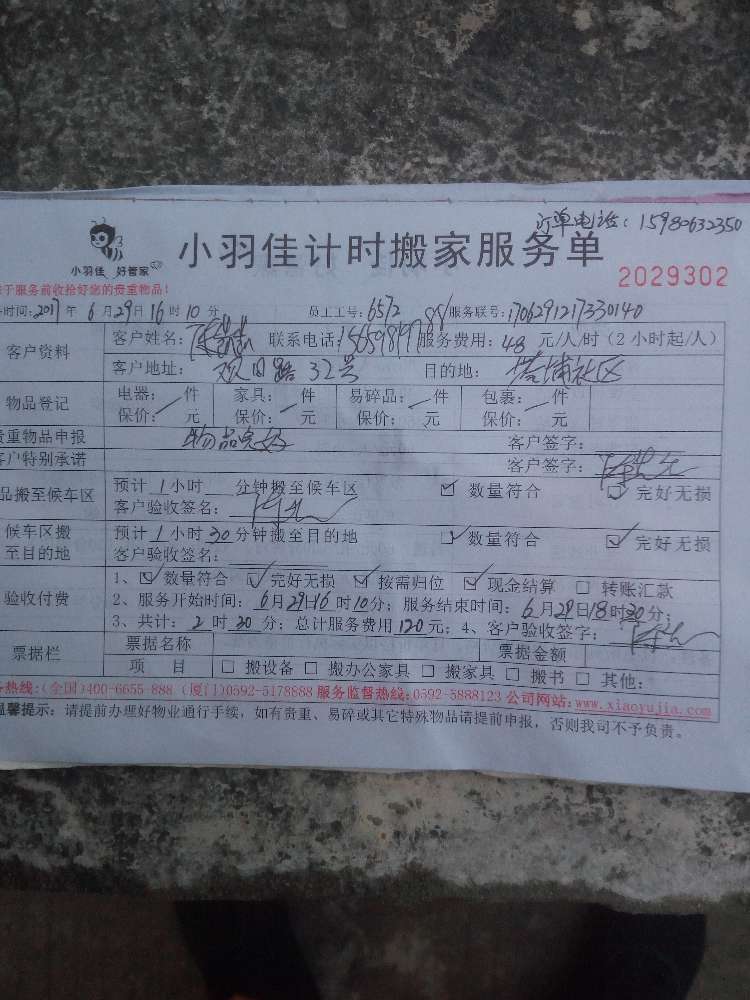 订单电话：15980632350
小羽佳 好管家
小羽佳计时搬家服务单
2029302
于服务前收拾好您的贵重物品！
时间：2017年6月29日16时10分 员工工号：6572 服务联号：1706291217330140
客户资料 客户姓名： 联系电话： 服务费用：48元/人/时（2小时起/人）
客户地址： 路32号 目的地：塔埔社区
物品登记 电器： 件 家具： 件 易碎品： 件 包裹： 件
保价： 元 保价： 元 保价： 元 保价： 元
贵重物品申报 物品完好 客户签字：
客户特别承诺 客户签字：
品搬至候车区 预计1小时 分钟搬至候车区 ☑ 数量符合 ☑ 完好无损
客户验收签名：
候车区搬至目的地 预计1小时30分钟搬至目的地 ☑ 数量符合 ☑ 完好无损
客户验收签名：
验收付费 1、☑ 数量符合 ☑ 完好无损 ☑ 按需归位 ☑ 现金结算 □ 转账汇款
2、服务开始时间：6月29日16时10分；服务结束时间：6月29日18时30分；
3、共计：2时30分；总计服务费用120元；4、客户验收签字：
票据栏 票据名称 票据金额
项 目 □ 搬设备 □ 搬办公家具 □ 搬家具 □ 搬书 □ 其他：
务热线：(全国)400-6655-888 (厦门)0592-5178888 服务监督热线：0592-5888123 公司网站：www.xiaoyujia.com
温馨提示：请提前办理好物业通行手续，如有贵重、易碎或其它特殊物品请提前申报，否则我司不予负责。